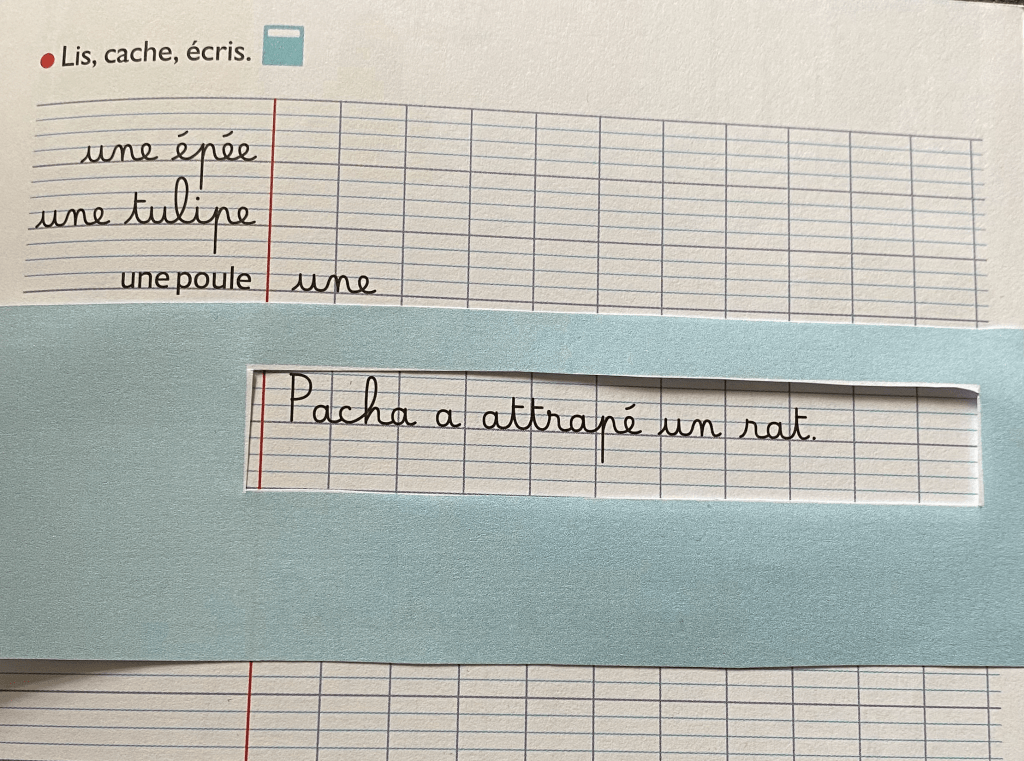 Lis, cache, écris.
une épée
une tulipe
une poule une
Pacha a attrapé un rat.